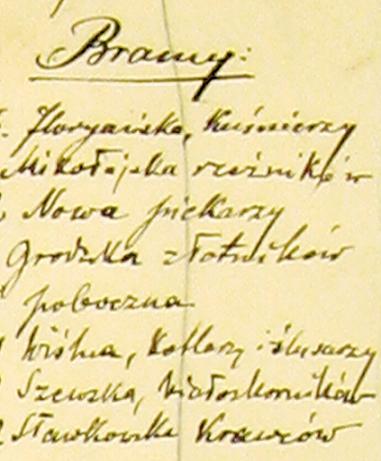 Bramy:
Floryańska, Kuśnierzy
Mikołajska rzeźników
Nowa piekarzy
Grodzka złotników
poboczna
Wiślna, Kotlarzy i ślusarzy
Szewska, białoskorników
Sławkowska Krawców